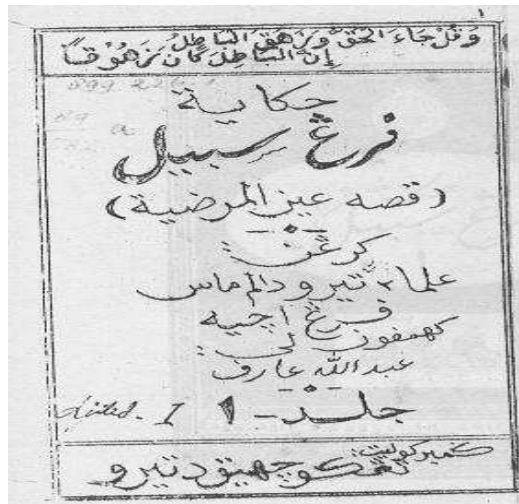 ١
وَقُلْ جَاءَ الْحَقُّ وَزَهَقَ الْبَاطِلُ
إِنَّ الْبَاطِلَ كَانَ زَهُوْقًا
حكاية
فرڠ سبيل
(قصه عين المرضية)
كرڠن:
علماء تيرو دالم ماس
فرڠ اچيه
كهمفون لي:
عبدالله عارف
جلد - ١ Jilid - I
كمبر كوليت: تڠكو چهيق دتيرو